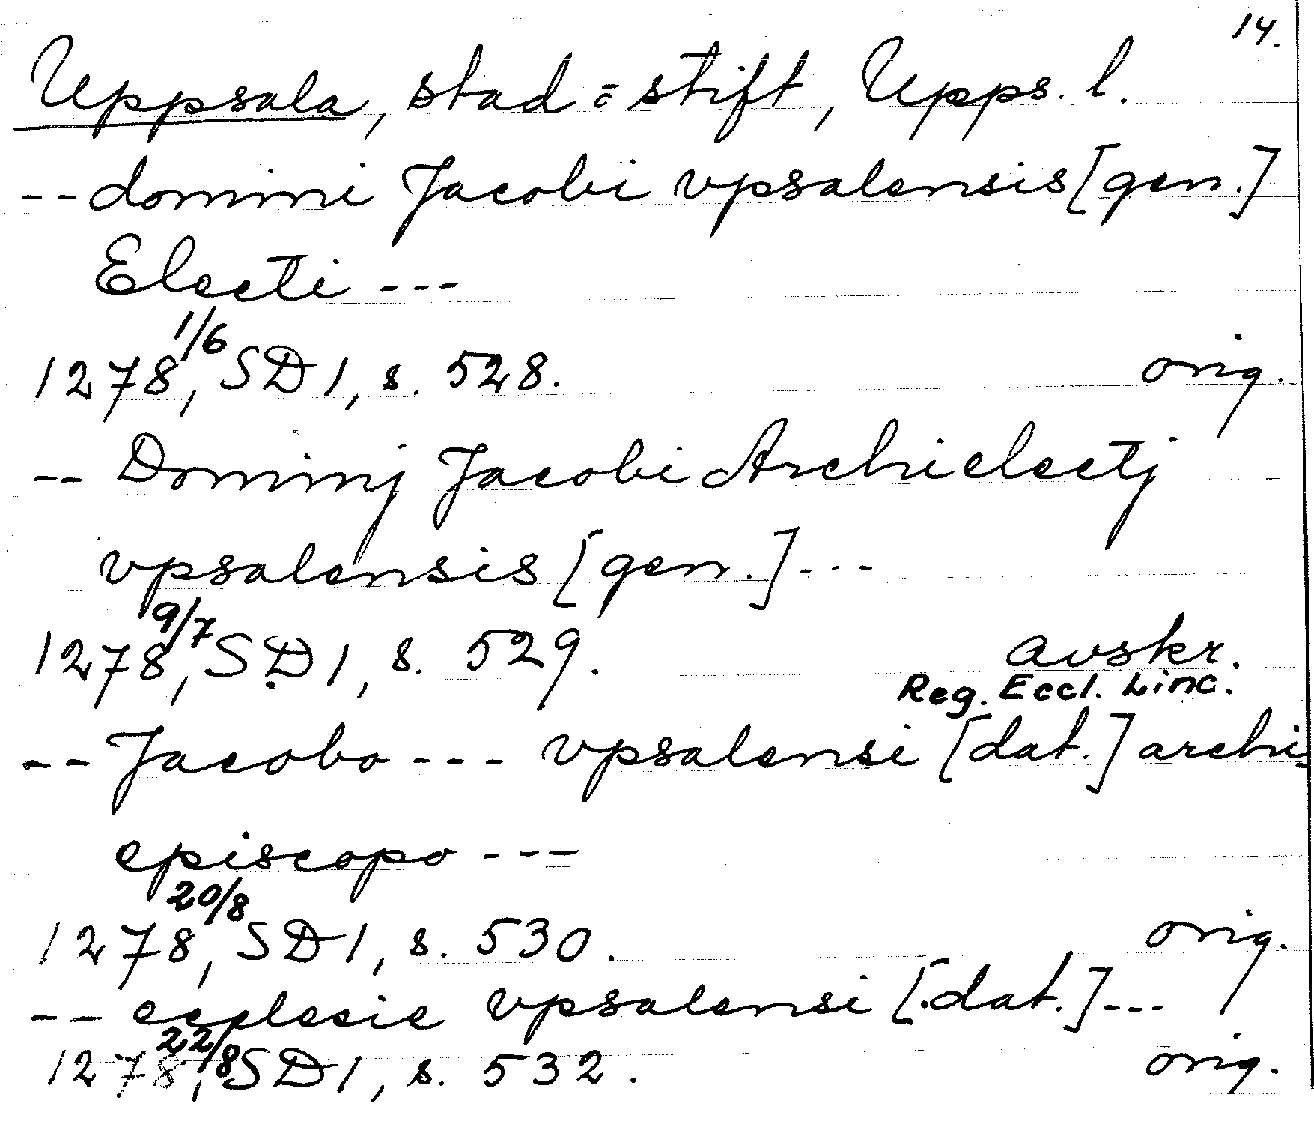 14.
Uppsala, stad = stift, Upps. l.
-- domini Jacobi vpsalensis [gen.]
Electi ---
1278 1/6, SD 1, s. 528. orig.
-- Dominj Jacobi Archielectj
vpsalensis [gen.] ---
1278 9/7, SD 1, s. 529. avskr.
Reg. Eccl. Linc.
-- Jacobo --- vpsalensi [dat.] archi=
episcopo ---
1278 20/8, SD 1, s. 530. orig.
-- ecclesie vpsalensi [dat.] ---
1278 22/8, SD 1, s. 532. orig.